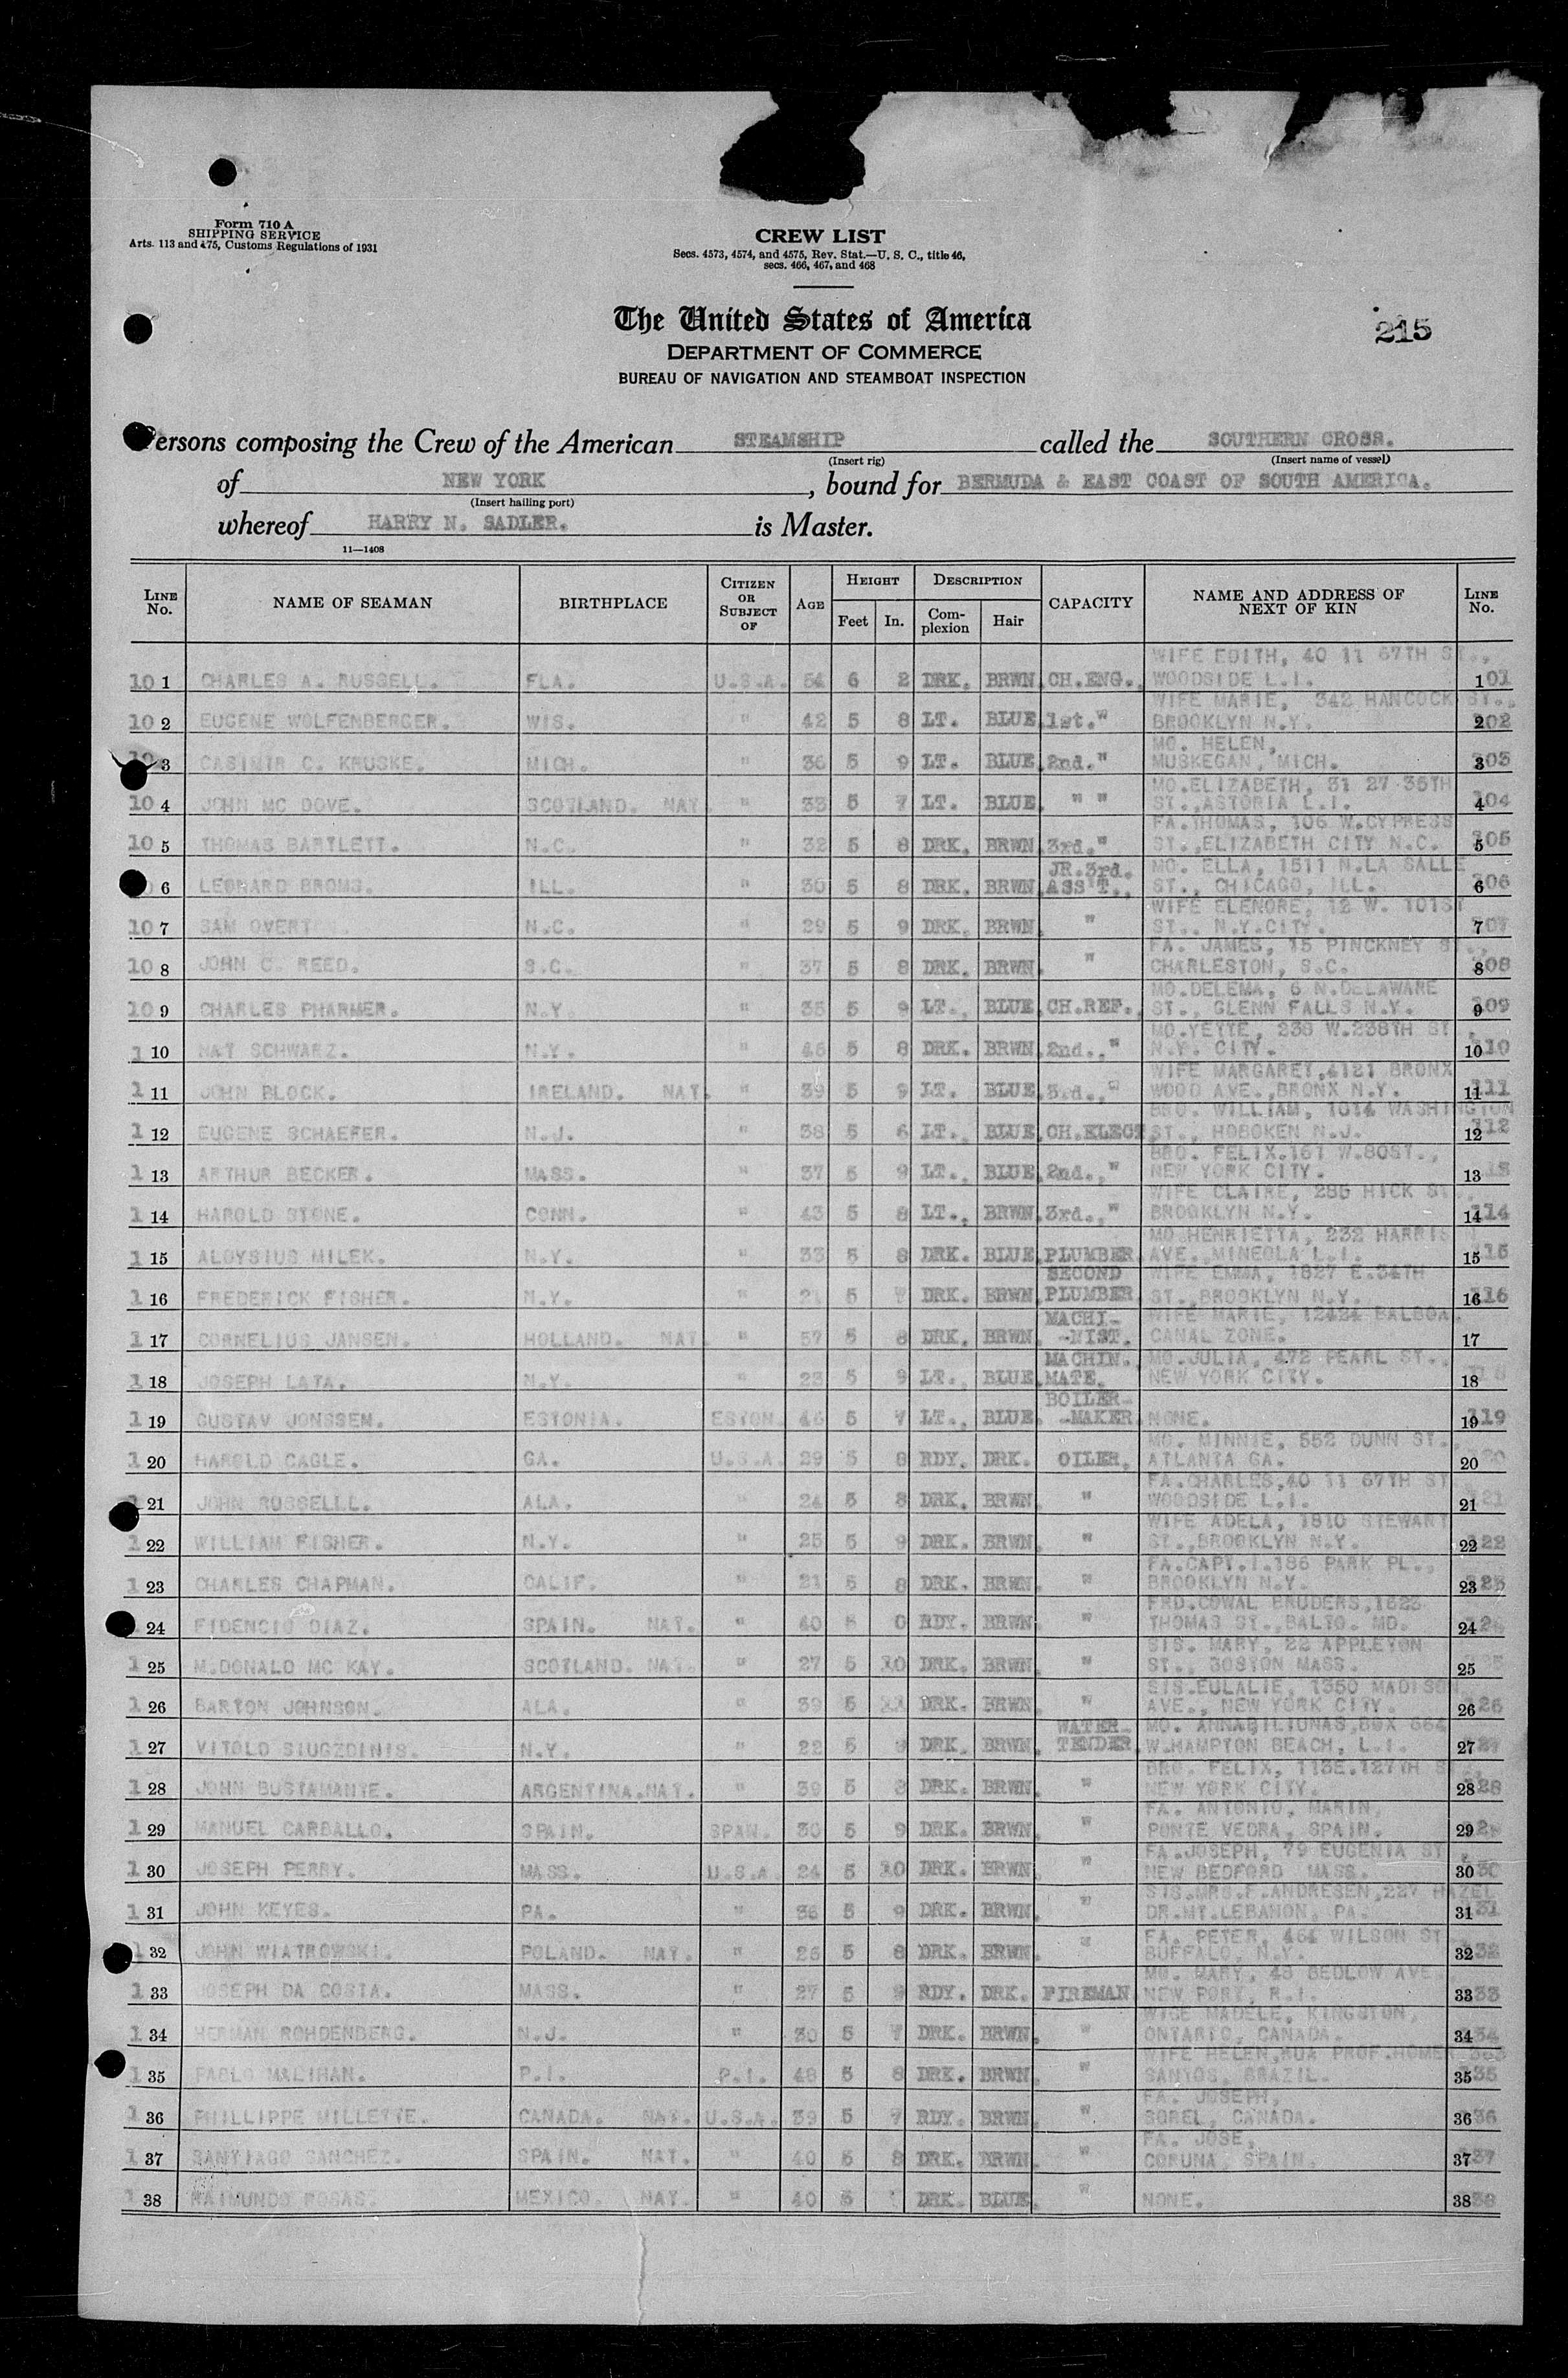 Form 710 A
SHIPPING SERVICE
Arts. 113 and 475, Customs Regulations of 1931
CREW LIST
Secs. 4573, 4574, and 4575, Rev. Stat.—U. S. C., title 46,
secs. 466, 467, and 468
The United States of America
DEPARTMENT OF COMMERCE
BUREAU OF NAVIGATION AND STEAMBOAT INSPECTION
215
Persons composing the Crew of the American STEAMSHIP called the SOUTHERN CROSS.
(Insert rig) (Insert name of vessel)
of NEW YORK, bound for BERMUDA & EAST COAST OF SOUTH AMERICA.
(Insert hailing port)
whereof HARRY N. SADLER. is Master.
11—1408
LINE No. NAME OF SEAMAN BIRTHPLACE CITIZEN OR SUBJECT OF AGE HEIGHT Feet In. DESCRIPTION Complexion Hair CAPACITY NAME AND ADDRESS OF NEXT OF KIN LINE No.
WIFE EDITH, 40 11 67TH ST.,
10 1 CHARLES A. RUSSELL. FLA. U.S.A. 54 6 2 DRK. BRWN. CH.ENG., WOODSIDE L.I. 1 01
WIFE MARIE, 342 HANCOCK ST.,
10 2 EUGENE WOLFENBERGER. WIS. " 42 5 8 LT. BLUE. 1st." BROOKLYN N.Y. 2 02
MO. HELEN,
3 CASIMIR C. KRUSKE. MICH. " 36 5 9 LT. BLUE. 2nd." MUSKEGAN, MICH. 3 03
MO.ELIZABETH, 31 27 35TH
10 4 JOHN MC DOVE. SCOTLAND. NAT. " 33 5 7 LT. BLUE. " " ST.,ASTORIA L.I. 4 04
FA.THOMAS, 106 W.CYPRESS
10 5 THOMAS BARTLETT. N.C. " 32 5 8 DRK. BRWN. 3rd." ST.,ELIZABETH CITY N.C. 5 05
JR.3rd. MO. ELLA, 1511 N.LA SALLE
6 LEONARD BROMS. ILL. " 30 5 8 DRK. BRWN. ASS'T., ST., CHICAGO, ILL. 6 06
WIFE ELENORE, 12 W. 101ST
10 7 SAM OVERT N.C. " 29 5 9 DRK. BRWN. " ST.. N.Y.CITY. 7 07
FA. JAMES, 15 PINCKNEY ST.,
10 8 JOHN C. REED. S.C. " 37 5 8 DRK. BRWN. " CHARLESTON, S.C. 8 08
MO.DELEMA, 6 N.DELAWARE
10 9 CHARLES PHARMER. N.Y. " 35 5 9 LT. BLUE. CH.REF. ST., GLENN FALLS N.Y. 9 09
MO.YETTE, 238 W.238TH ST.
1 10 NAT SCHWARZ. N.Y. " 46 5 8 DRK. BRWN. 2nd.," N.Y. CITY. 10 10
WIFE MARGARET,4121 BRONX
1 11 JOHN BLOCK. IRELAND. NAT. " 39 5 9 LT. BLUE. 3rd.," WOOD AVE.,BRONX N.Y. 11 111
BRO. WILLIAM, 1014 WASHINGTON
1 12 EUGENE SCHAEFER. N.J. " 38 5 6 LT. BLUE. CH.ELECT. ST., HOBOKEN N.J. 12 112
BRO. FELIX.161 W.80ST.,
1 13 ARTHUR BECKER. MASS. " 37 5 9 LT. BLUE. 2nd.," NEW YORK CITY. 13
WIFE CLAIRE, 285 HICK ST.,
1 14 HAROLD STONE. CONN. " 43 5 8 LT., BRWN. 3rd.," BROOKLYN N.Y. 14 114
MO.HENRIETTA, 232 HARRIS N
1 15 ALOYSIUS MILEK. N.Y. " 33 5 8 DRK. BLUE. PLUMBER. AVE.,MINEOLA L.I. 15 115
SECOND WIFE EMMA, 1827 E.34TH
1 16 FREDERICK FISHER. N.Y. " 21 5 7 DRK. BRWN. PLUMBER. ST.,BROOKLYN N.Y. 16 116
MACHI- WIFE MARIE, 12424 BALBOA.
1 17 CORNELIUS JANSEN. HOLLAND. NAT. " 57 5 8 DRK. BRWN. -NIST. CANAL ZONE. 17
MACHIN. MO.JULIA, 472 PEARL ST.,
1 18 JOSEPH LATA. N.Y. " 23 5 9 LT. BLUE. MATE. NEW YORK CITY. 18
BOILER-
1 19 GUSTAV JONSSEN. ESTONIA. ESTON. 46 5 7 LT. BLUE. -MAKER. NONE. 19 119
MO. MINNIE, 552 DUNN ST.,
1 20 HAROLD CAGLE. GA. U.S.A. 29 5 8 RDY. DRK. OILER. ATLANTA GA. 20
FA.CHARLES,40 11 67TH ST
1 21 JOHN RUSSELLL. ALA. " 24 5 8 DRK. BRWN. " WOODSIDE L.I. 21 121
WIFE ADELA, 1810 STEWART
1 22 WILLIAM FISHER. N.Y. " 25 5 9 DRK. BRWN. " ST.,BROOKLYN N.Y. 22 122
FA.CAPT.I.186 PARK PL.,
1 23 CHARLES CHAPMAN. CALIF. " 21 5 8 DRK. BRWN. " BROOKLYN N.Y. 23 123
FRD.COWAL BRUDERS,1623
24 FIDENCIO DIAZ. SPAIN. NAT. " 40 5 0 RDY. BRWN. " THOMAS ST.,BALTO. MD. 24
SIS. MARY, 22 APPLETON
1 25 M.DONALD MC KAY. SCOTLAND. NAT. " 27 5 10 DRK. BRWN. " ST., BOSTON MASS. 25
SIS.EULALIE, 1350 MADISON
1 26 BARTON JOHNSON. ALA. " 39 5 11 DRK. BRWN. " AVE., NEW YORK CITY. 26 126
WATER- MO. ANNAGILIUNAS,BOX 664
1 27 VITOLD SIUGZDINIS. N.Y. " 22 5 9 DRK. BRWN. TENDER. W.HAMPTON BEACH, L.I. 27
BRO. FELIX, 113E.127TH ST.,
1 28 JOHN BUSTAMANTE. ARGENTINA.NAT. " 39 5 8 DRK. BRWN. " NEW YORK CITY. 28 28
FA. ANTONIO, MARIN,
1 29 MANUEL CARBALLO. SPAIN. SPAN. 30 5 9 DRK. BRWN. " PONTE VEDRA, SPAIN. 29
FA.JOSEPH, 79 EUGENIA ST.
1 30 JOSEPH PERRY. MASS. U.S.A. 24 5 10 DRK. BRWN. " NEW BEDFORD MASS. 30 30
SIS.MRS.F.ANDRESEN,227 HAZEL
1 31 JOHN KEYES. PA. " 36 5 9 DRK. BRWN. " DR.MT.LEBANON, PA. 31 31
FA. PETER, 464 WILSON ST.
32 JOHN WIATROWSKI. POLAND. NAT. " 26 5 8 DRK. BRWN. " BUFFALO, N.Y. 32 32
MO. MARY, 48 BEDLOW AVE.
1 33 JOSEPH DA COSTA. MASS. " 27 5 9 RDY. DRK. FIREMAN. NEW PORT, R.I. 33 33
WIGE MADELE, KINGSTON,
1 34 HERMAN ROHDENBERG. N.J. " 30 5 7 DRK. BRWN. " ONTARIO, CANADA. 34 34
WIFE HELEN,RUA PROF.HOMER 363
1 35 PABLO MALIHAN. P.I. P.I. 48 5 8 DRK. BRWN. " SANTOS, BRAZIL. 35 35
FA. JOSEPH,
1 36 PHILLIPPE MILLETTE. CANADA. NAT. U.S.A. 39 5 7 RDY. BRWN. " SOREL, CANADA. 36 36
FA. JOSE,
1 37 SANTIAGO SANCHEZ. SPAIN. NAT. " 40 5 8 DRK. BRWN. " CORUNA, SPAIN. 37 37
1 38 RAIMUNDO ROSAS. MEXICO. NAT. " 40 5 DRK. BLUE. " NONE. 38 38